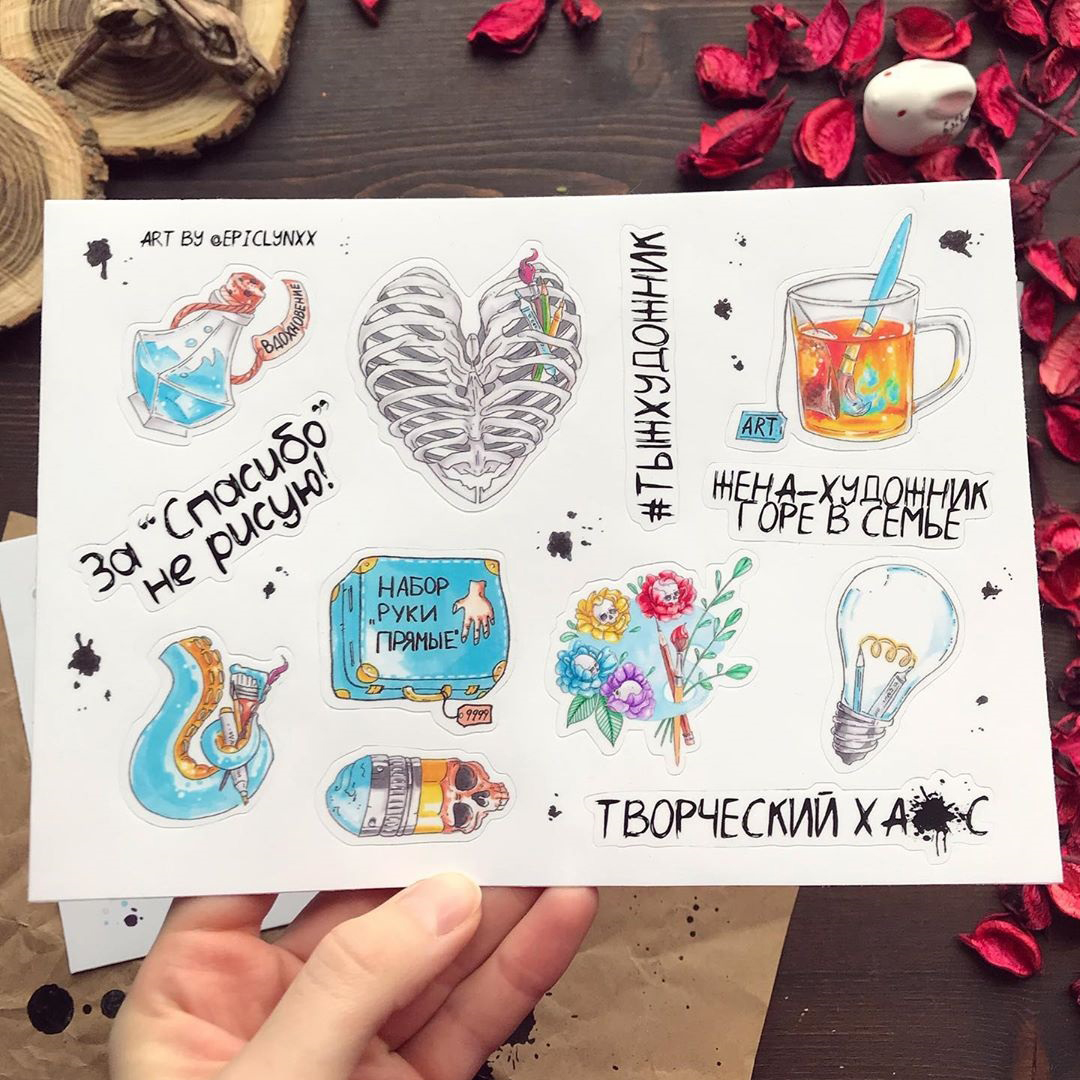 ART BY @EPICLYNXX
ВДОХНОВЕНИЕ
За "Спасибо"
не рисую!
#ТЫЖХУДОЖНИК
ART
ЖЕНА-ХУДОЖНИК
ГОРЕ В СЕМЬЕ
НАБОР
РУКИ
"ПРЯМЫЕ"
9999
ТВОРЧЕСКИЙ ХАОС